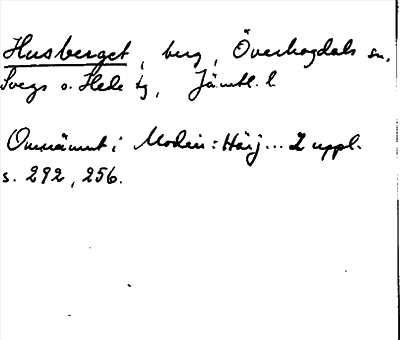 Husberget, berg, Överhogdals sn,
Svegs o. Hede tg, Jämtl. l
Omnämnt i Modin: Härj... 2 uppl.
s. 292, 256.